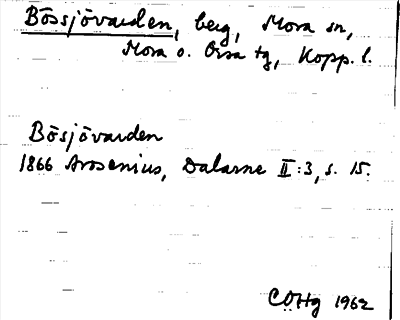 Bössjövarden, berg, Mora sn,
Mora o. Orsa tg, Kopp. l.
Bösjövarden
1866 Arosenius, Dalarne II:3, s. 15.
COHg 1962